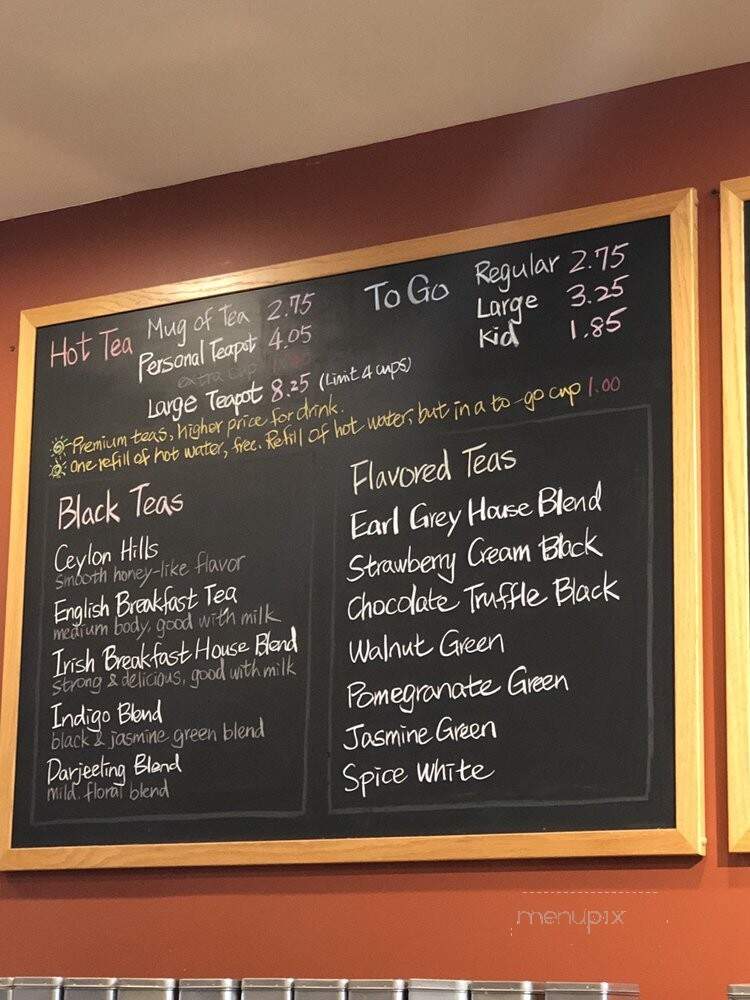 Hot Tea
Mug of Tea 2.75
Personal Teapot 4.05
extra cup
Large Teapot 8.25 (Limit 4 cups)
To Go
Regular 2.75
Large 3.25
Kid 1.85
Premium teas, higher price for drink.
One refill of hot water, free. Refill of hot water, but in a to-go cup 1.00
Black Teas
Ceylon Hills
Smooth honey-like flavor
English Breakfast Tea
medium body, good with milk
Irish Breakfast House Blend
strong & delicious, good with milk
Indigo Blend
black & jasmine green blend
Darjeeling Blend
mild, floral blend
Flavored Teas
Earl Grey House Blend
Strawberry Cream Black
Chocolate Truffle Black
Walnut Green
Pomegranate Green
Jasmine Green
Spice White
menupix